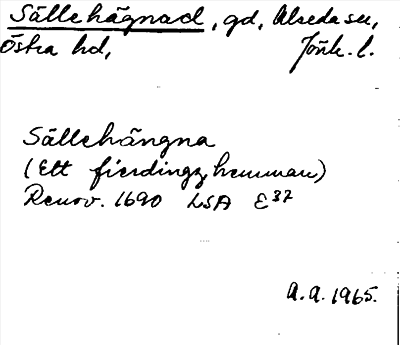 Sällehägnad, gd, Alseda sn,
Östra hd, Jönk. l.
Sällehängna
(Ett fierdingz hemman)
Renov. 1690 LSA E37
A.A. 1965.